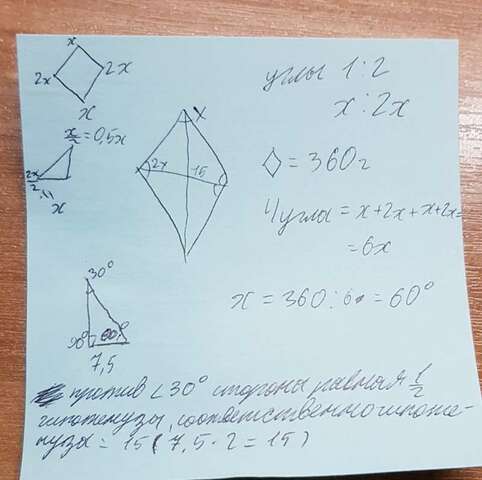 x
2x
2x
x
x/2 = 0,5x
2x/2 = x
углы 1:2
x:2x
x
2x
15
◊ = 360г
4 угла = x+2x+x+2x=
= 6x
x = 360:6 = 60°
30°
90°
60°
7,5
против ∠30° стороны равная 1/2
гипотенузы, соответственно гипоте-
нуза = 15 (7,5 · 2 = 15)